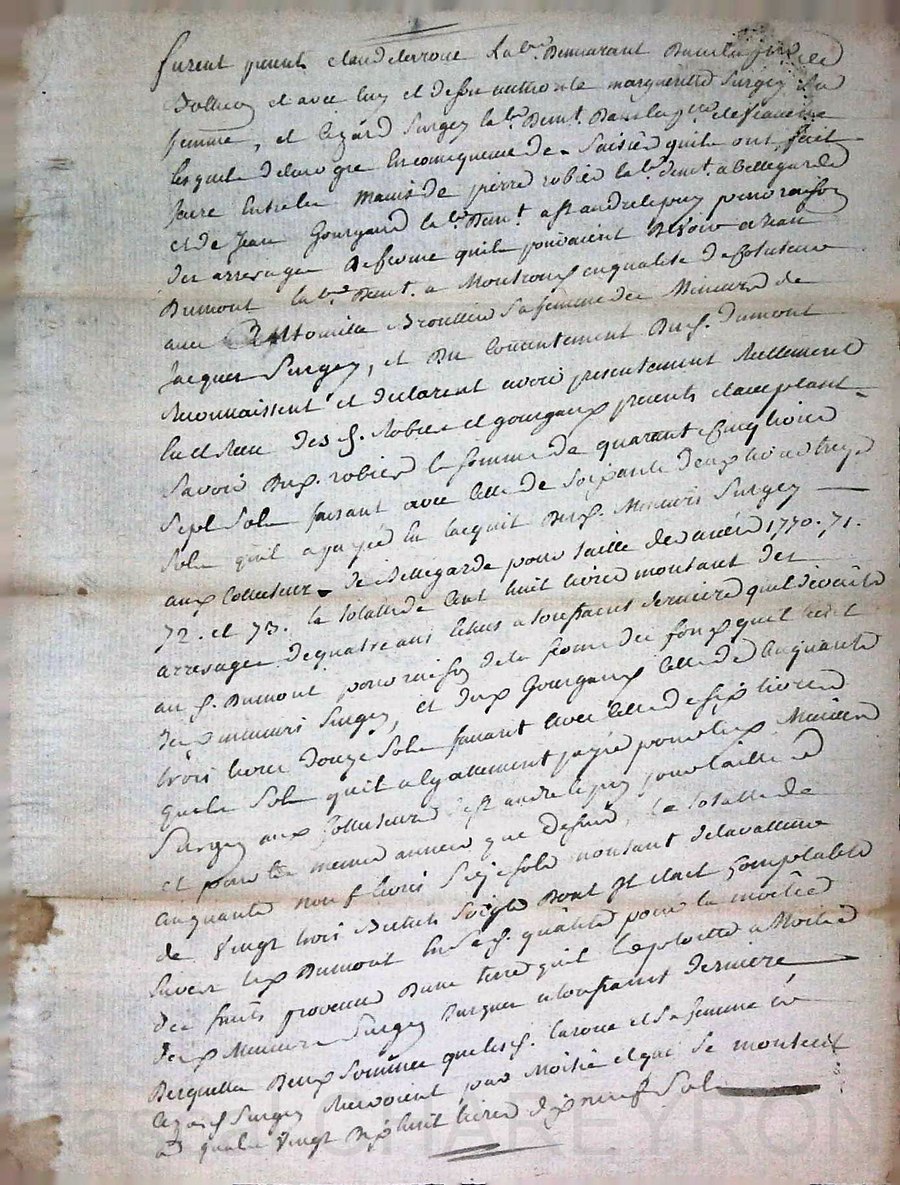 furent present claude laroue lab.r demeurant
et avec luy et de son autorité marguerite Surgey sa
femme, et Lezard Surgey lab.r dem.t
lesquels de leur gré en consequence de Saisies quils ont fait
faire entre les mains de pierre robier lab.r dem.t a bellegarde
et de Jean Gourgaud lab.r dem.t a st andre le puy pour raison
des arrerages de ferme quils pouvaient devoir a Jean
Dumont lab.r dem.t a Montrond en qualité de
avec Anthoinette sa femme des Mineurs de
Jacques Surgey, et du Consentement dud. S. dumont
reconnaissent et declarent avoir presentement reellement
eu et reçu des S. robier et gourgaux presents et acceptant
Savoir dud. robier la somme de quarante cinq livres
Sept Sols faisant avec celle de Soixante deux livres treize
Sols quil a payée en lacquit desd. Mineurs Surgey
aux Collecteurs de Bellegarde pour taille des années 1770. 71.
72. et 73. la totale de Cent huit livres montant des
arrerages de quatre ans echus a toussaint derniere quil devoit
au S. Dumont pour raison de la ferme des fonds quil tient
desd mineurs Surgey, et dud Gourgaux celle de Cinquante
trois livres douze Sols faisant avec celle de six livres
quatre Sols quil a egallement payée pour lesd. Mineurs
Surgey aux Collecteurs de st andre le puy pour taille
et pour les memes années que dessus, la totalle de
Cinquante neuf livres Seize sols montant de la valleur
de Vingt trois Bichets Seigle dont Il etait Comptable
envers led Dumont en sad. qualité pour la moitié
des fruits provenus dune terre quil exploitte a Moitié
desd Mineurs Surgey a toussaint derniere
Desquelles deux Sommes que lesd. laroue et sa femme et
Lezard Surgey recoivent pour Moitié et qui se montent
a quatre Vingt dix huit livres dix neuf Sols
CHAREYRON